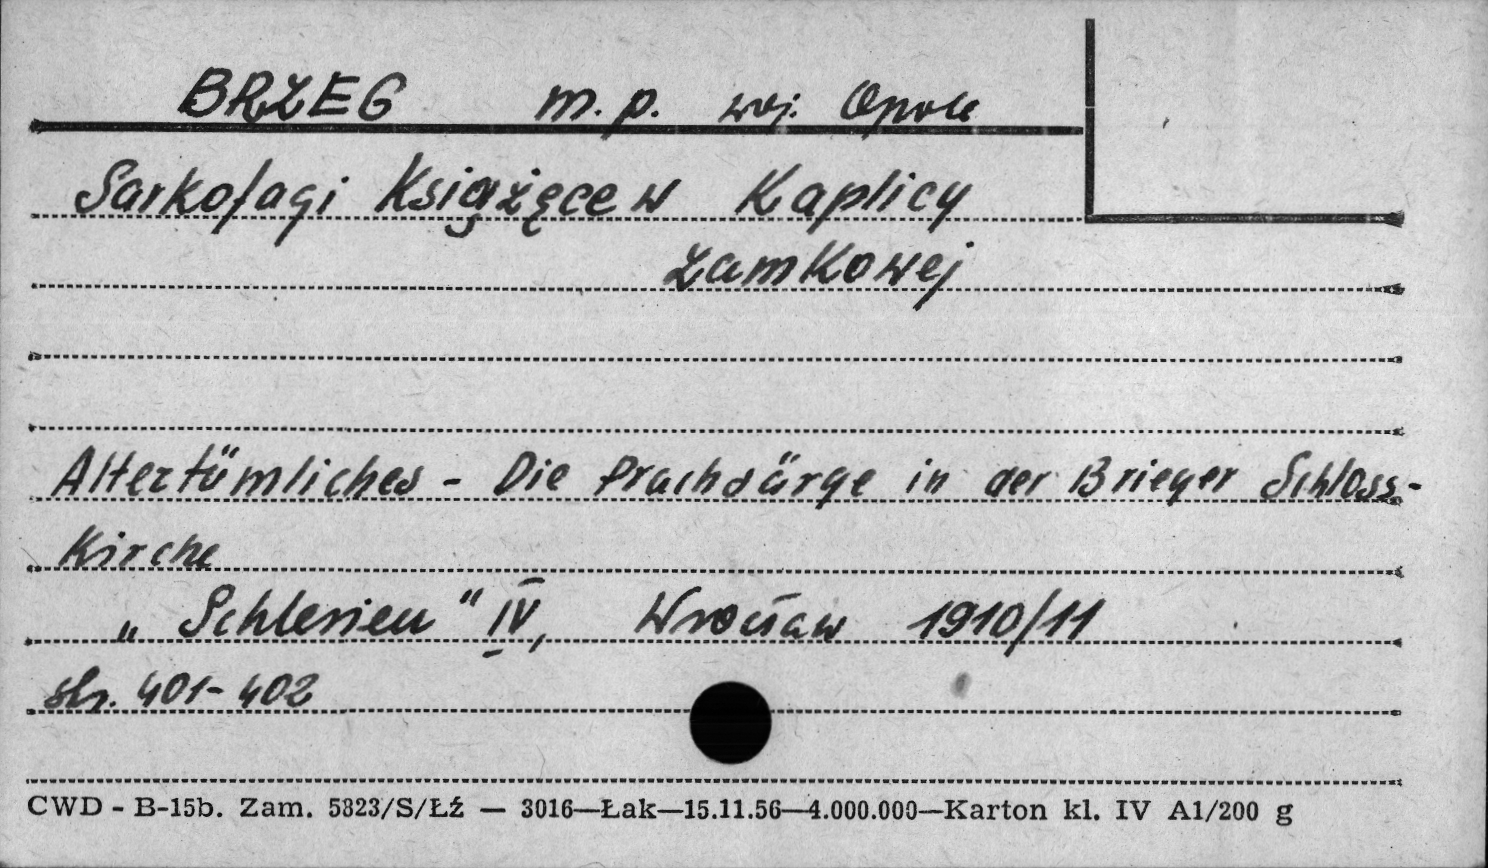 BRZEG m.p. woj. Opole
Sarkofagi Książęce w Kaplicy
Zamkowej
Altertümliches - Die Prachsärge in der Brieger Schloss-
Kirche
„Schlesien" IV, Wrocław 1910/11
str. 401-402
CWD - B-15b. Zam. 5823/S/ŁŹ — 3016—Łak—15.11.56—4.000.000—Karton kl. IV A1/200 g